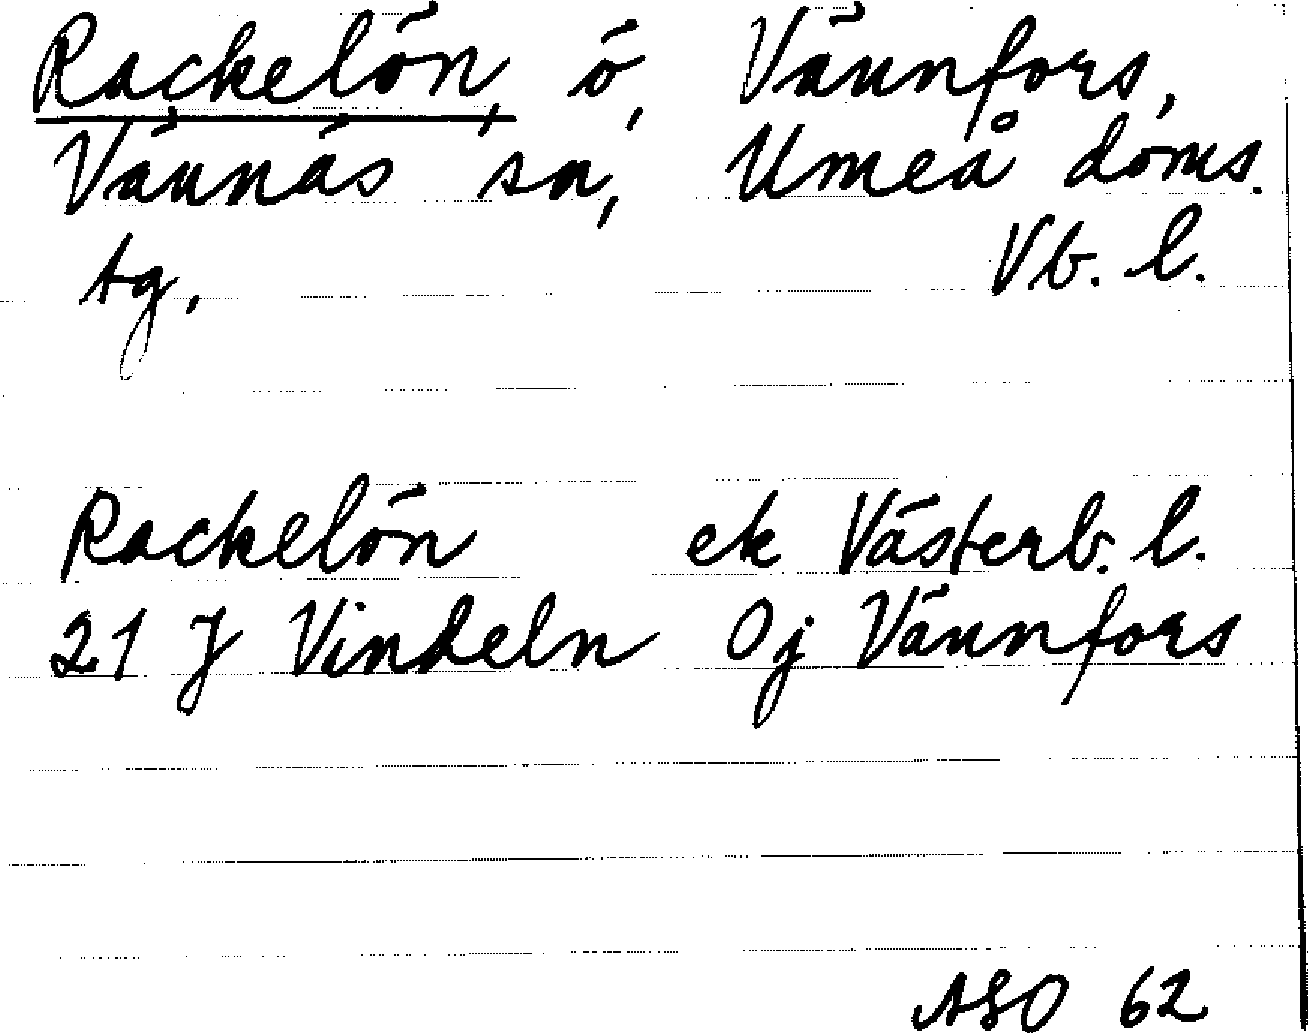 Rackelön, ö, Vännfors,
Vännäs sn, Umeå doms.
tg, Vb. l.
Rackelön ek Västerb. l.
21 J Vindeln Öj Vännfors
ASO 62